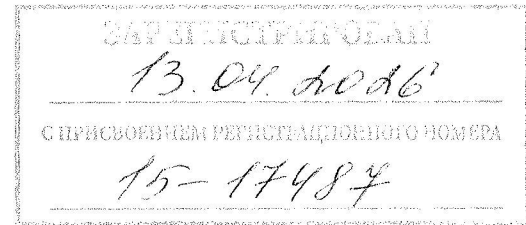 ЗАРЕГИСТРИРОВАН
13.04.2026
С ПРИСВОЕНИЕМ РЕГИСТРАЦИОННОГО НОМЕРА
15-17487